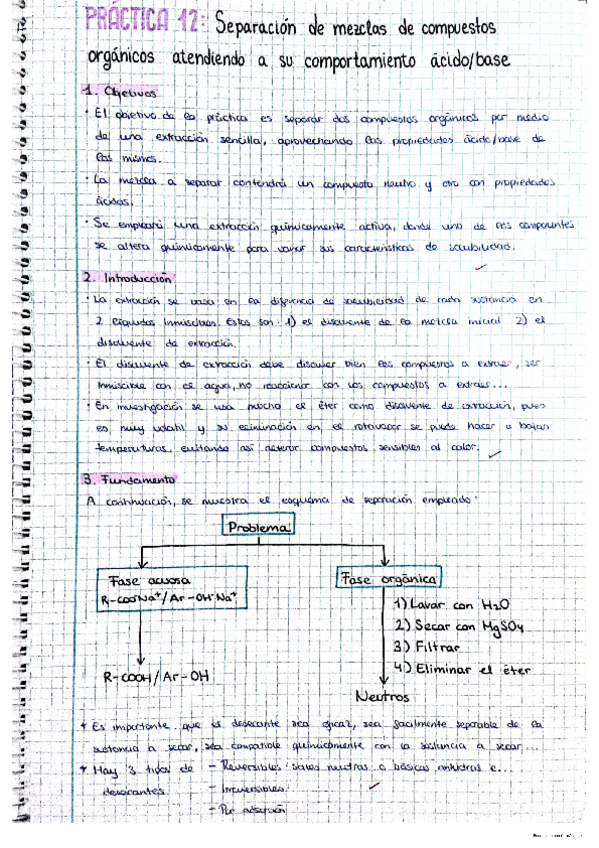 PRÁCTICA 12: Separación de mezclas de compuestos
orgánicos atendiendo a su comportamiento ácido/base
1. Objetivos
· El objetivo de la práctica es separar dos compuestos orgánicos por medio
de una extracción sencilla, aprovechando las propiedades ácido/base de
los mismos.
· La mezcla a separar contendrá un compuesto neutro y otro con propiedades
ácidas.
· Se empleará una extracción químicamente activa, donde uno de los componentes
se altera químicamente para variar sus características de solubilidad.
2. Introducción
· La extracción se basa en la diferencia de solubilidad de cada sustancia en
2 líquidos inmiscibles. Estos son: 1) el disolvente de la mezcla inicial 2) el
disolvente de extracción.
· El disolvente de extracción debe disolver bien los compuestos a extraer, ser
inmiscible con el agua, no reaccionar con los compuestos a extraer...
· En investigación se usa mucho el éter como disolvente de extracción, pues
es muy volátil y su eliminación en el rotavapor se puede hacer a bajas
temperaturas, evitando así deterior compuestos sensibles al calor.
3. Fundamento
A continuación, se muestra el esquema de separación empleado:
Problema
Fase acuosa
R-COO⁻Na⁺/Ar-O⁻Na⁺
R-COOH/Ar-OH
Fase orgánica
1) Lavar con H₂O
2) Secar con MgSO₄
3) Filtrar
4) Eliminar el éter
Neutros
* Es importante que el desecante sea eficaz, sea fácilmente separable de la
sustancia a secar, sea compatible químicamente con la sustancia a secar...
* Hay 3 tipos de - Reversibles: sales neutras o básicas anhidras e...
desecantes - Irreversibles
- Por adsorción